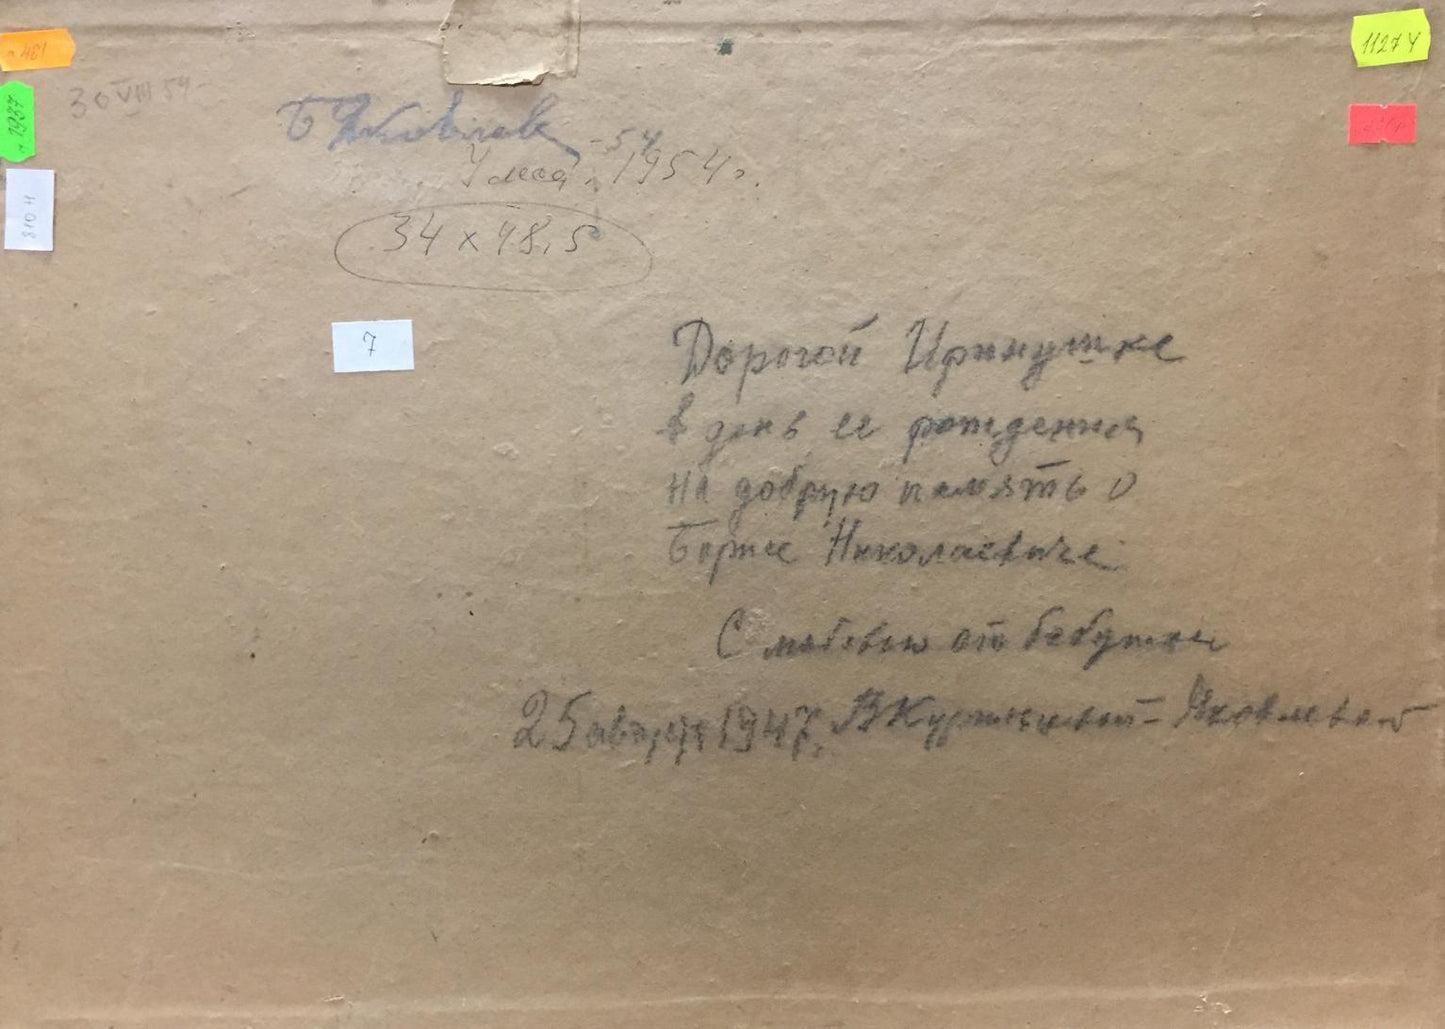 30 VIII 54
Б Яковлев -54
1954 г.
34 х 48,5
11274
1937
810 Н
7
Дорогой Иринушке
в день ее рождения
на добрую память о
Борисе Николаевиче
С любовью от бабушки
25 августа 1947. В Яковлевой